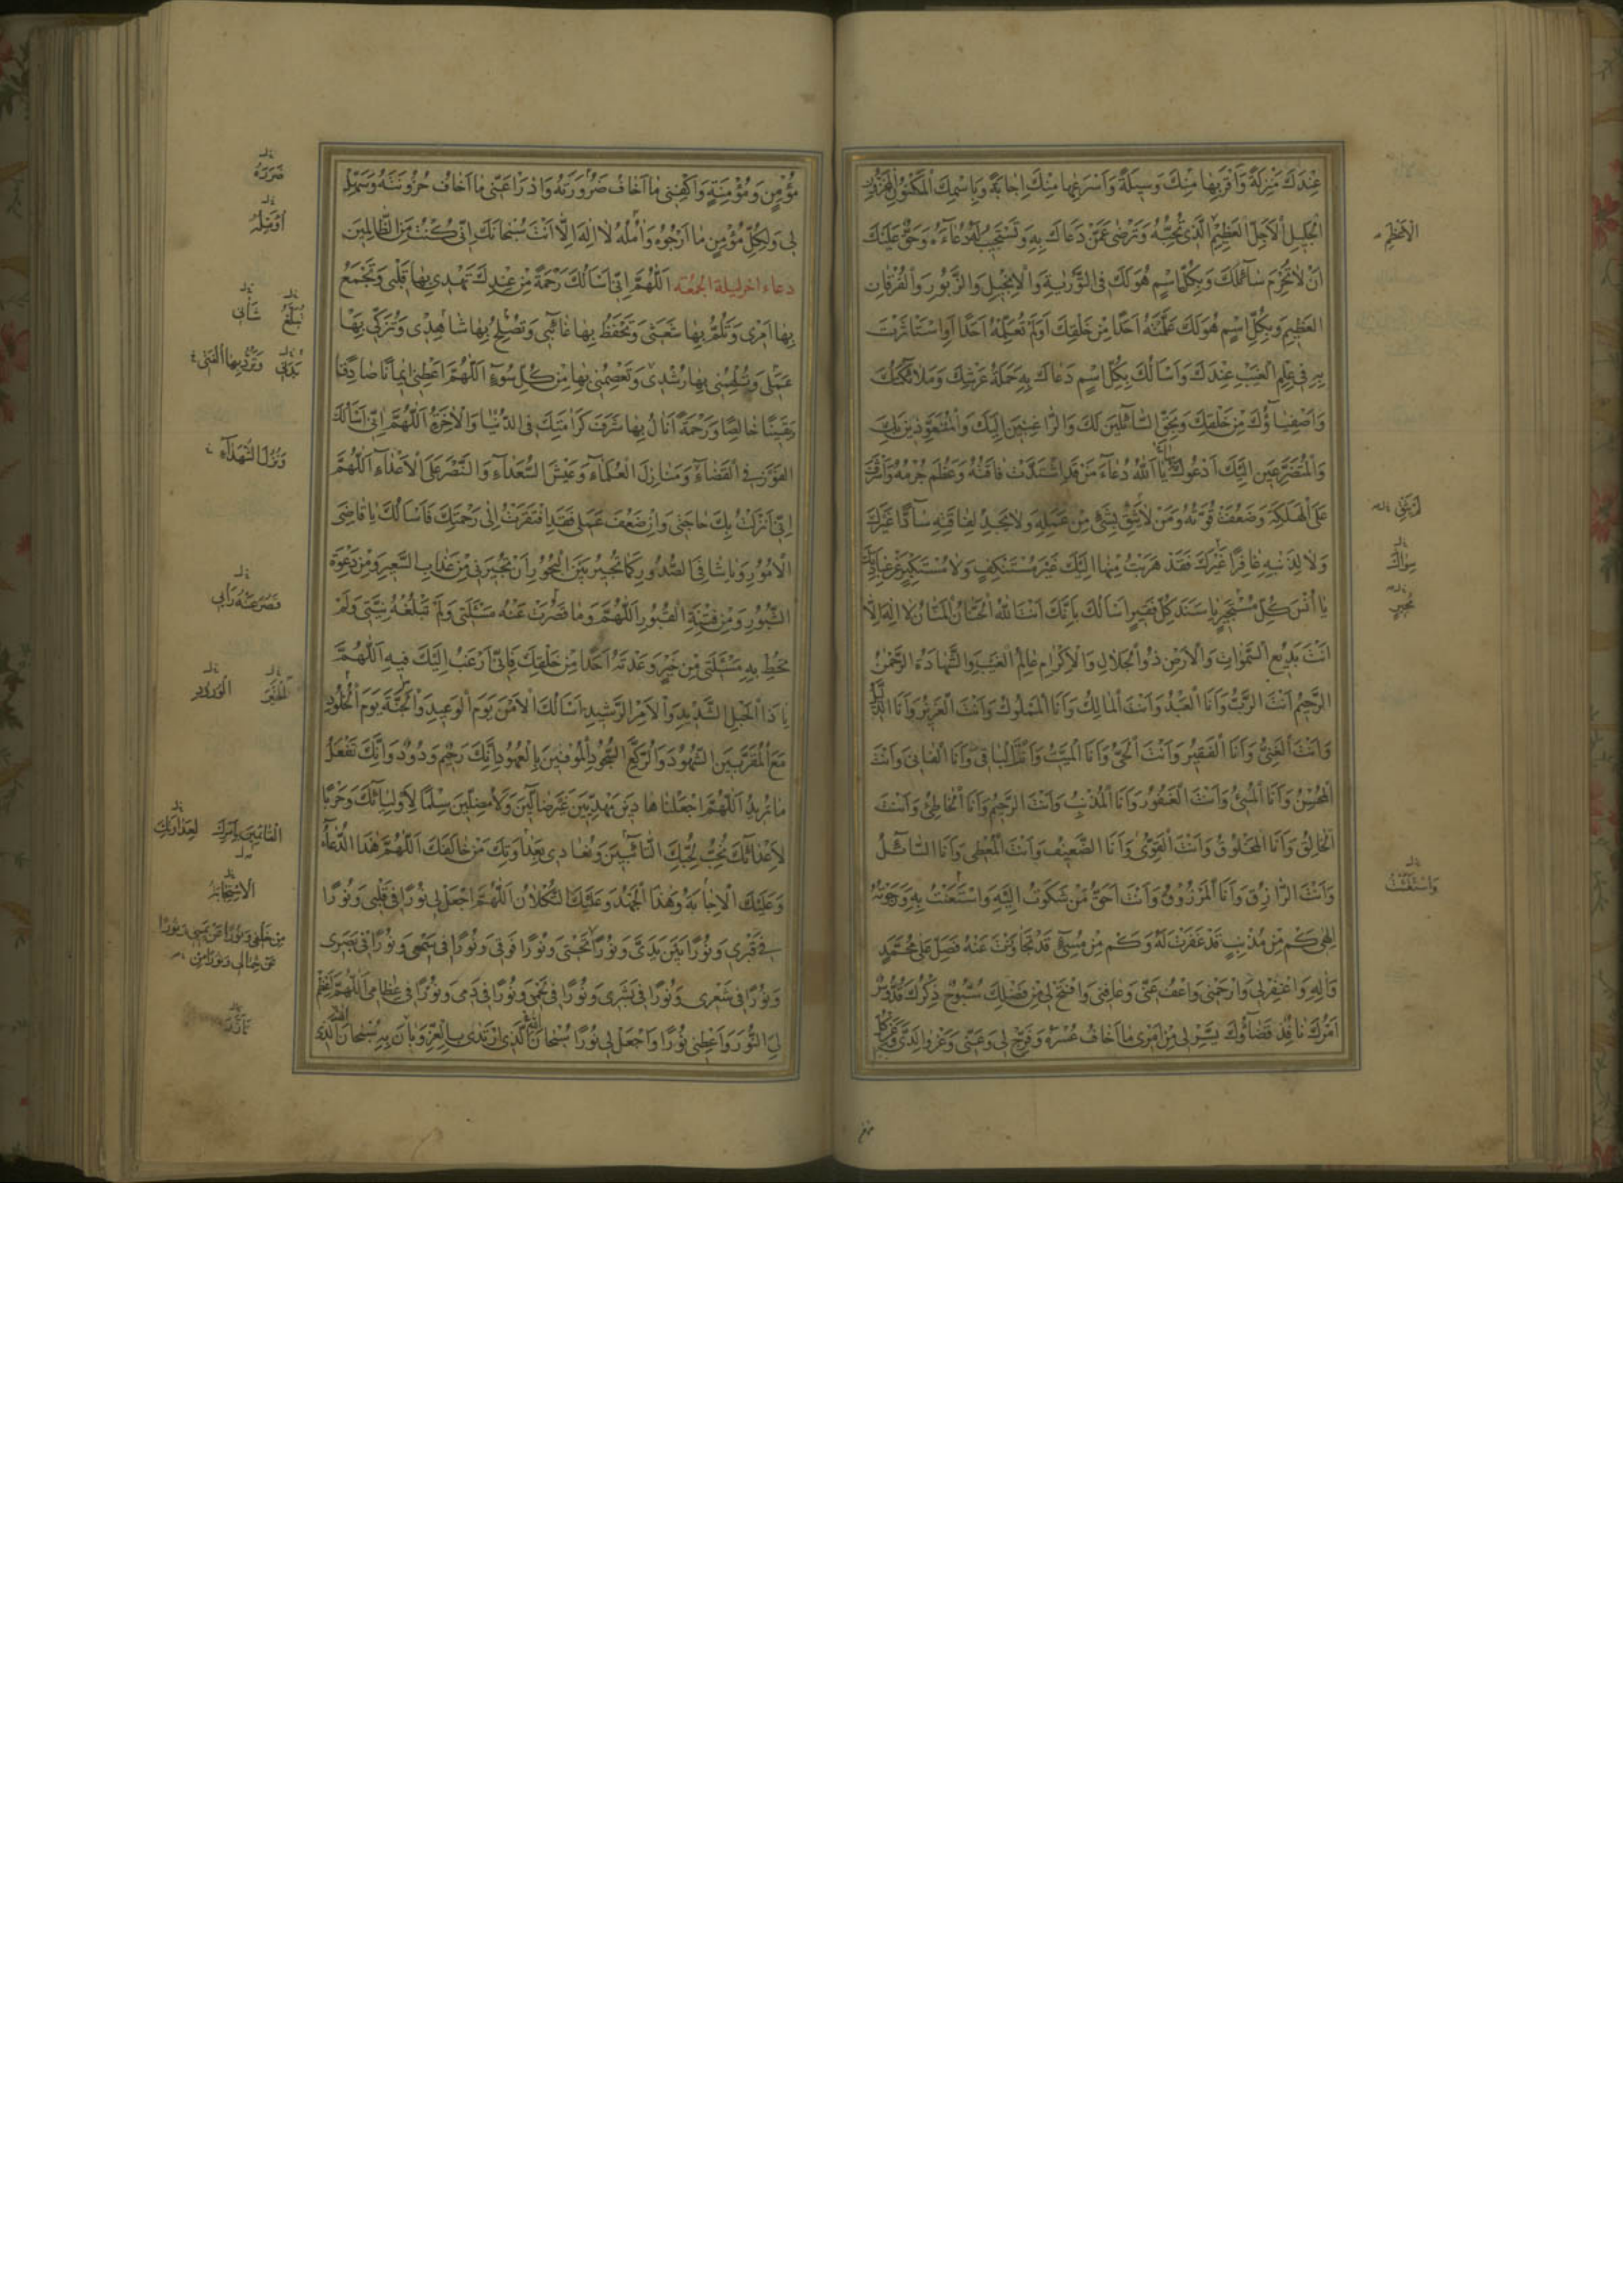 عِنْدَكَ مَنْزِلَةً وَاَقْرَبِهَا مِنْكَ وَسِيلَةً وَاَسْرَعِهَا مِنْكَ اِجَابَةً وَبِاسْمِكَ الْمَكْنُونِ الْمَخْزُونِ
الْجَلِيلِ الْاَجَلِّ الْعَظِيمِ الَّذِى تُحِبُّهُ وَتَرْضٰى عَمَّنْ دَعَاكَ بِهِ وَتَسْتَجِيبُ لَهُ دُعَاءَهُ وَحَقٌّ عَلَيْكَ
الْاَعْظَمِ
اَنْ لَا تَحْرِمَ سَائِلَكَ وَبِكُلِّ اسْمٍ هُوَ لَكَ فِى التَّوْرٰيةِ وَالْاِنْجِيلِ وَالزَّبُورِ وَالْفُرْقَانِ
الْعَظِيمِ وَبِكُلِّ اسْمٍ هُوَ لَكَ عَلَّمْتَهُ اَحَدًا مِنْ خَلْقِكَ اَوْ لَمْ تُعَلِّمْهُ اَحَدًا اَوِ اسْتَاْثَرْتَ
بِهِ فِى عِلْمِ الْغَيْبِ عِنْدَكَ وَاَسْاَلُكَ بِكُلِّ اسْمٍ دَعَاكَ بِهِ حَمَلَةُ عَرْشِكَ وَمَلَائِكَتُكَ
وَاَصْفِيَاؤُكَ مِنْ خَلْقِكَ وَبِحَقِّ السَّائِلِينَ لَكَ وَالرَّاغِبِينَ اِلَيْكَ وَالْمُتَعَوِّذِينَ بِكَ
وَالْمُتَضَرِّعِينَ اِلَيْكَ اَدْعُوكَ يَا اَللّٰهُ دُعَاءَ مَنْ قَدِ اشْتَدَّتْ فَاقَتُهُ وَعَظُمَ جُرْمُهُ وَاَشْرَفَ
عَلَى الْهَلَكَةِ وَضَعُفَتْ قُوَّتُهُ وَمَنْ لَا يَثِقُ بِشَىْءٍ مِنْ عَمَلِهِ وَلَا يَجِدُ لِفَاقَتِهِ سَادًّا غَيْرَكَ
وَلَا لِذَنْبِهِ غَافِرًا غَيْرَكَ فَقَدْ هَرَبْتُ مِنْهَا اِلَيْكَ غَيْرَ مُسْتَنْكِفٍ وَلَا مُسْتَكْبِرٍ عَنْ عِبَادَتِكَ
سِوَاكَ
يَا اُنْسَ كُلِّ مُسْتَجِيرٍ يَا سَنَدَ كُلِّ فَقِيرٍ اَسْاَلُكَ بِاَنَّكَ اَنْتَ اللّٰهُ الْحَنَّانُ الْمَنَّانُ لَا اِلٰهَ اِلَّا
اَنْتَ بَدِيعُ السَّمٰوَاتِ وَالْاَرْضِ ذُو الْجَلَالِ وَالْاِكْرَامِ عَالِمُ الْغَيْبِ وَالشَّهَادَةِ الرَّحْمٰنُ
الرَّحِيمُ اَنْتَ الرَّبُّ وَاَنَا الْعَبْدُ وَاَنْتَ الْمَالِكُ وَاَنَا الْمَمْلُوكُ وَاَنْتَ الْعَزِيزُ وَاَنَا الذَّلِيلُ
وَاَنْتَ الْغَنِىُّ وَاَنَا الْفَقِيرُ وَاَنْتَ الْحَىُّ وَاَنَا الْمَيِّتُ وَاَنْتَ الْبَاقِى وَاَنَا الْفَانِى وَاَنْتَ
الْمُحْسِنُ وَاَنَا الْمُسِىءُ وَاَنْتَ الْغَفُورُ وَاَنَا الْمُذْنِبُ وَاَنْتَ الرَّحِيمُ وَاَنَا الْخَاطِئُ وَاَنْتَ
الْخَالِقُ وَاَنَا الْمَخْلُوقُ وَاَنْتَ الْقَوِىُّ وَاَنَا الضَّعِيفُ وَاَنْتَ الْمُعْطِى وَاَنَا السَّائِلُ
وَاَنْتَ الرَّازِقُ وَاَنَا الْمَرْزُوقُ وَاَنْتَ اَحَقُّ مَنْ شَكَوْتُ اِلَيْهِ وَاسْتَعَنْتُ بِهِ وَرَجَوْتُهُ
وَاسْتَغَثْتُ
اِلٰهِى كَمْ مِنْ مُذْنِبٍ قَدْ غَفَرْتَ لَهُ وَكَمْ مِنْ مُسِىءٍ قَدْ تَجَاوَزْتَ عَنْهُ فَصَلِّ عَلٰى مُحَمَّدٍ
وَاٰلِهِ وَاغْفِرْ لِى وَارْحَمْنِى وَاعْفُ عَنِّى وَعَافِنِى وَافْتَحْ لِى مِنْ فَضْلِكَ سُبُّوحٌ ذِكْرُكَ قُدُّوسٌ
اَمْرُكَ نَافِذٌ قَضَاؤُكَ يَسِّرْ لِى مِنْ اَمْرِى مَا اَخَافُ عُسْرَهُ وَفَرِّجْ لِى وَعَنِّى وَعَنْ وَالِدَىَّ وَعَنْ كُلِّ
مُؤْمِنٍ وَمُؤْمِنَةٍ وَاكْفِنِى مَا اَخَافُ ضَرُورَتَهُ وَادْرَأْ عَنِّى مَا اَخَافُ حُزُونَتَهُ وَسَهِّلْ
لِى وَلِكُلِّ مُؤْمِنٍ مَا اَرْجُوهُ وَاٰمُلُهُ لَا اِلٰهَ اِلَّا اَنْتَ سُبْحَانَكَ اِنِّى كُنْتُ مِنَ الظَّالِمِينَ
دعاء اخر ليلة الجمعة اَللّٰهُمَّ اِنِّى اَسْاَلُكَ رَحْمَةً مِنْ عِنْدِكَ تَهْدِى بِهَا قَلْبِى وَتَجْمَعُ
بِهَا اَمْرِى وَتَلُمُّ بِهَا شَعَثِى وَتَحْفَظُ بِهَا غَائِبِى وَتُصْلِحُ بِهَا شَاهِدِى وَتُزَكِّى بِهَا
عَمَلِى وَتُلْهِمُنِى بِهَا رُشْدِى وَتَعْصِمُنِى بِهَا مِنْ كُلِّ سُوءٍ اَللّٰهُمَّ اَعْطِنِى اِيمَانًا صَادِقًا
وَيَقِينًا خَالِصًا وَرَحْمَةً اَنَالُ بِهَا شَرَفَ كَرَامَتِكَ فِى الدُّنْيَا وَالْاٰخِرَةِ اَللّٰهُمَّ اِنِّى اَسْاَلُكَ
الْفَوْزَ فِى الْقَضَاءِ وَمَنَازِلَ الْعُلَمَاءِ وَعَيْشَ السُّعَدَاءِ وَالنَّصْرَ عَلَى الْاَعْدَاءِ اَللّٰهُمَّ
وَنُزُلَ الشُّهَدَاءِ
اِنِّى اَنْزَلْتُ بِكَ حَاجَتِى وَاِنْ ضَعُفَ عَمَلِى فَقَدِ افْتَقَرْتُ اِلٰى رَحْمَتِكَ فَاَسْاَلُكَ يَا قَاضِىَ
الْاُمُورِ وَيَا شَافِىَ الصُّدُورِ كَمَا تُجِيرُ بَيْنَ الْبُحُورِ اَنْ تُجِيرَنِى مِنْ عَذَابِ السَّعِيرِ وَمِنْ دَعْوَةِ
الثُّبُورِ وَمِنْ فِتْنَةِ الْقُبُورِ اَللّٰهُمَّ وَمَا قَصُرَتْ عَنْهُ مَسْئَلَتِى وَلَمْ تَبْلُغْهُ نِيَّتِى وَلَمْ
تُحِطْ بِهِ مَسْئَلَتِى مِنْ خَيْرٍ وَعَدْتَهُ اَحَدًا مِنْ خَلْقِكَ فَاِنِّى اَرْغَبُ اِلَيْكَ فِيهِ اَللّٰهُمَّ
يَا ذَا الْحَبْلِ الشَّدِيدِ وَالْاَمْرِ الرَّشِيدِ اَسْاَلُكَ الْاَمْنَ يَوْمَ الْوَعِيدِ وَالْجَنَّةَ يَوْمَ الْخُلُودِ
مَعَ الْمُقَرَّبِينَ الشُّهُودِ وَالرُّكَّعِ السُّجُودِ الْمُوفِينَ بِالْعُهُودِ اِنَّكَ رَحِيمٌ وَدُودٌ وَاِنَّكَ تَفْعَلُ
مَا تُرِيدُ اَللّٰهُمَّ اجْعَلْنَا هَادِينَ مَهْدِيِّينَ غَيْرَ ضَالِّينَ وَلَا مُضِلِّينَ سِلْمًا لِاَوْلِيَائِكَ وَحَرْبًا
لِاَعْدَائِكَ نُحِبُّ لِحُبِّكَ التَّائِبِينَ وَنُعَادِى بِعَدَاوَتِكَ مَنْ خَالَفَكَ اَللّٰهُمَّ هٰذَا الدُّعَاءُ
وَعَلَيْكَ الْاِجَابَةُ وَهٰذَا الْجَهْدُ وَعَلَيْكَ التُّكْلَانُ اَللّٰهُمَّ اجْعَلْ لِى نُورًا فِى قَلْبِى وَنُورًا
فِى قَبْرِى وَنُورًا بَيْنَ يَدَىَّ وَنُورًا تَحْتِى وَنُورًا فَوْقِى وَنُورًا فِى سَمْعِى وَنُورًا فِى بَصَرِى
وَنُورًا فِى شَعْرِى وَنُورًا فِى بَشَرِى وَنُورًا فِى لَحْمِى وَنُورًا فِى دَمِى وَنُورًا فِى عِظَامِى اَللّٰهُمَّ اَعْظِمْ
لِىَ النُّورَ وَاَعْطِنِى نُورًا وَاجْعَلْ لِى نُورًا سُبْحَانَ الَّذِى ارْتَدٰى بِالْعِزِّ وَبَانَ بِهِ سُبْحَانَ الَّذِى